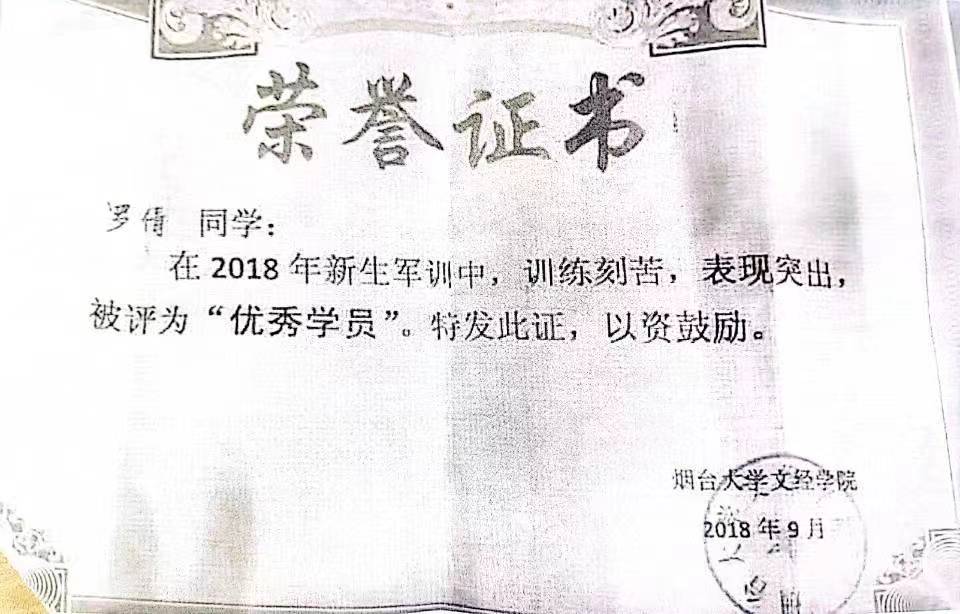 荣誉证书
罗倩 同学：
在2018年新生军训中，训练刻苦，表现突出，
被评为“优秀学员”。特发此证，以资鼓励。
烟台大学文经学院
2018年9月